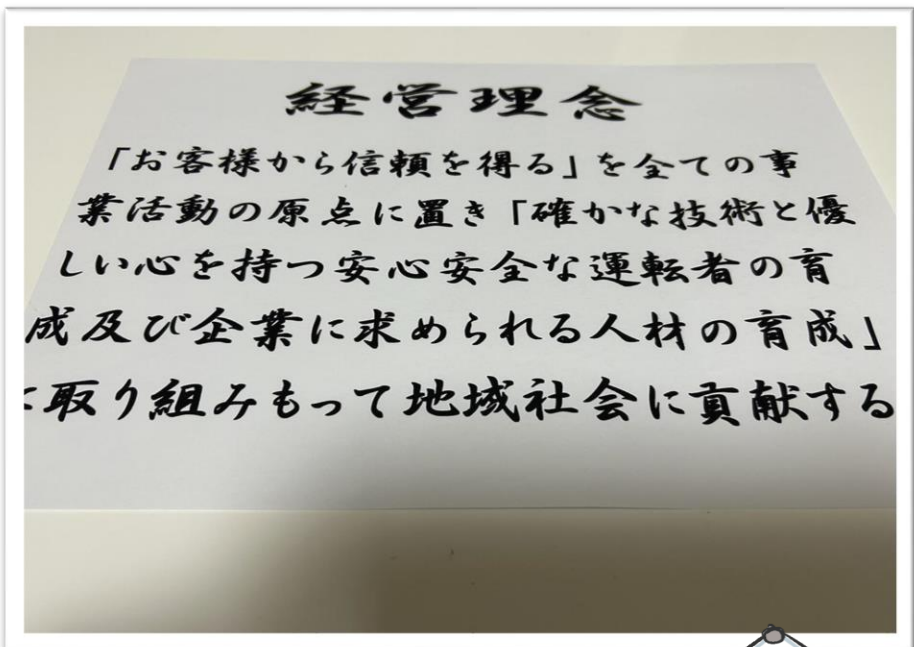 経営理念
「お客様から信頼を得る」を全ての事
業活動の原点に置き「確かな技術と優
しい心を持つ安心安全な運転者の育
成及び企業に求められる人材の育成」
に取り組みもって地域社会に貢献する